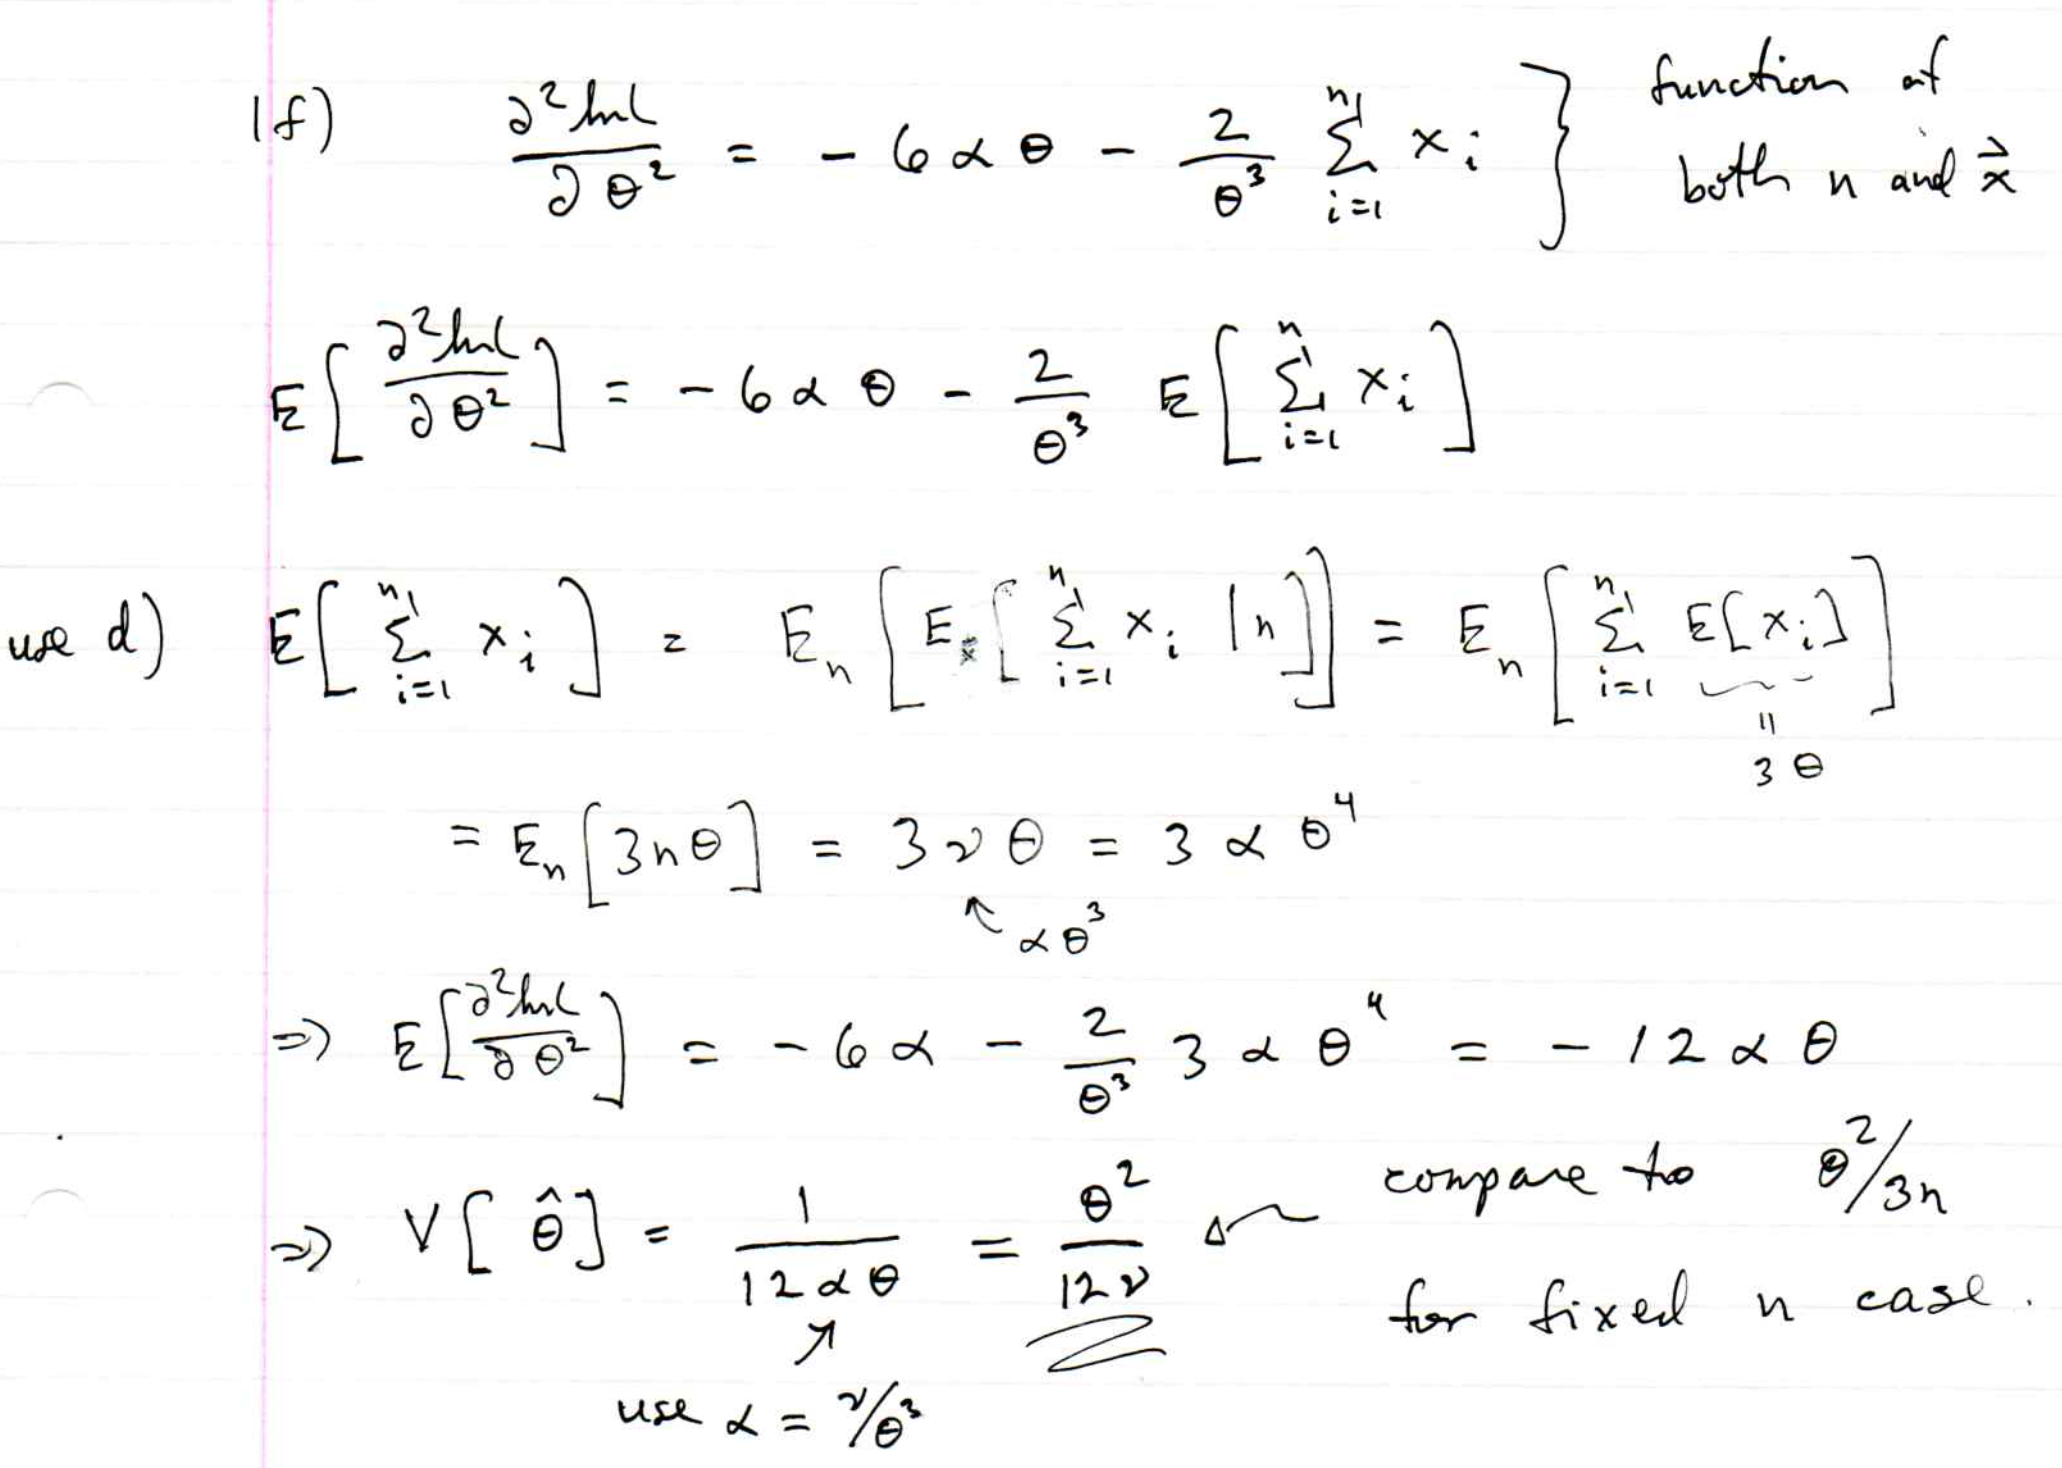 1f) ∂² ln L / ∂θ² = - 6 α θ - 2/θ³ Σ_{i=1}^{n} x_i } function of both n and x⃗
E[ ∂² ln L / ∂θ² ] = - 6 α θ - 2/θ³ E[ Σ_{i=1}^{n} x_i ]
use d) E[ Σ_{i=1}^{n} x_i ] = E_n[ E[ Σ_{i=1}^{n} x_i | n ] ] = E_n[ Σ_{i=1}^{n} E[x_i] ]
= 3θ
= E_n[ 3nθ ] = 3νθ = 3 α θ⁴
↖ αθ³
⇒ E[ ∂² ln L / ∂θ² ] = - 6 α - 2/θ³ 3 α θ⁴ = - 12 α θ
⇒ V[ θ̂ ] = 1 / 12αθ = θ² / 12ν ← compare to θ²/3n
for fixed n case.
↗
use α = ν/θ³